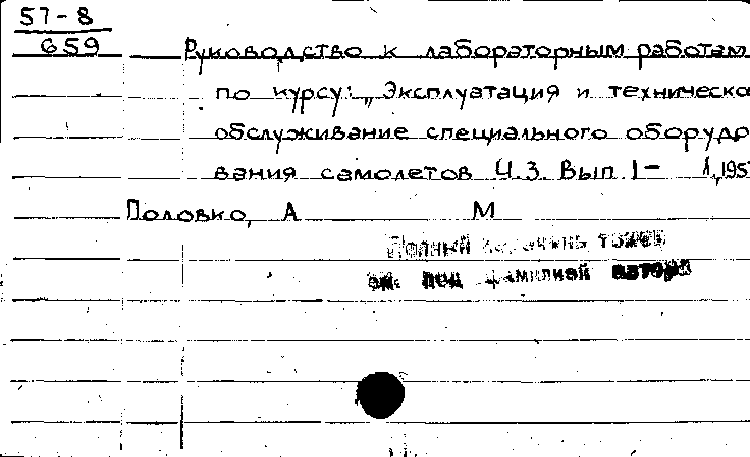 57-8
659
Руководство к лабораторным работам
по курсу: „Эксплуатация и техническо
обслуживание специального оборудо
вания самолетов Ч.3. Вып. 1- 1, 195
Половко, А М
Полный перечень томов
см. под фамилией автора